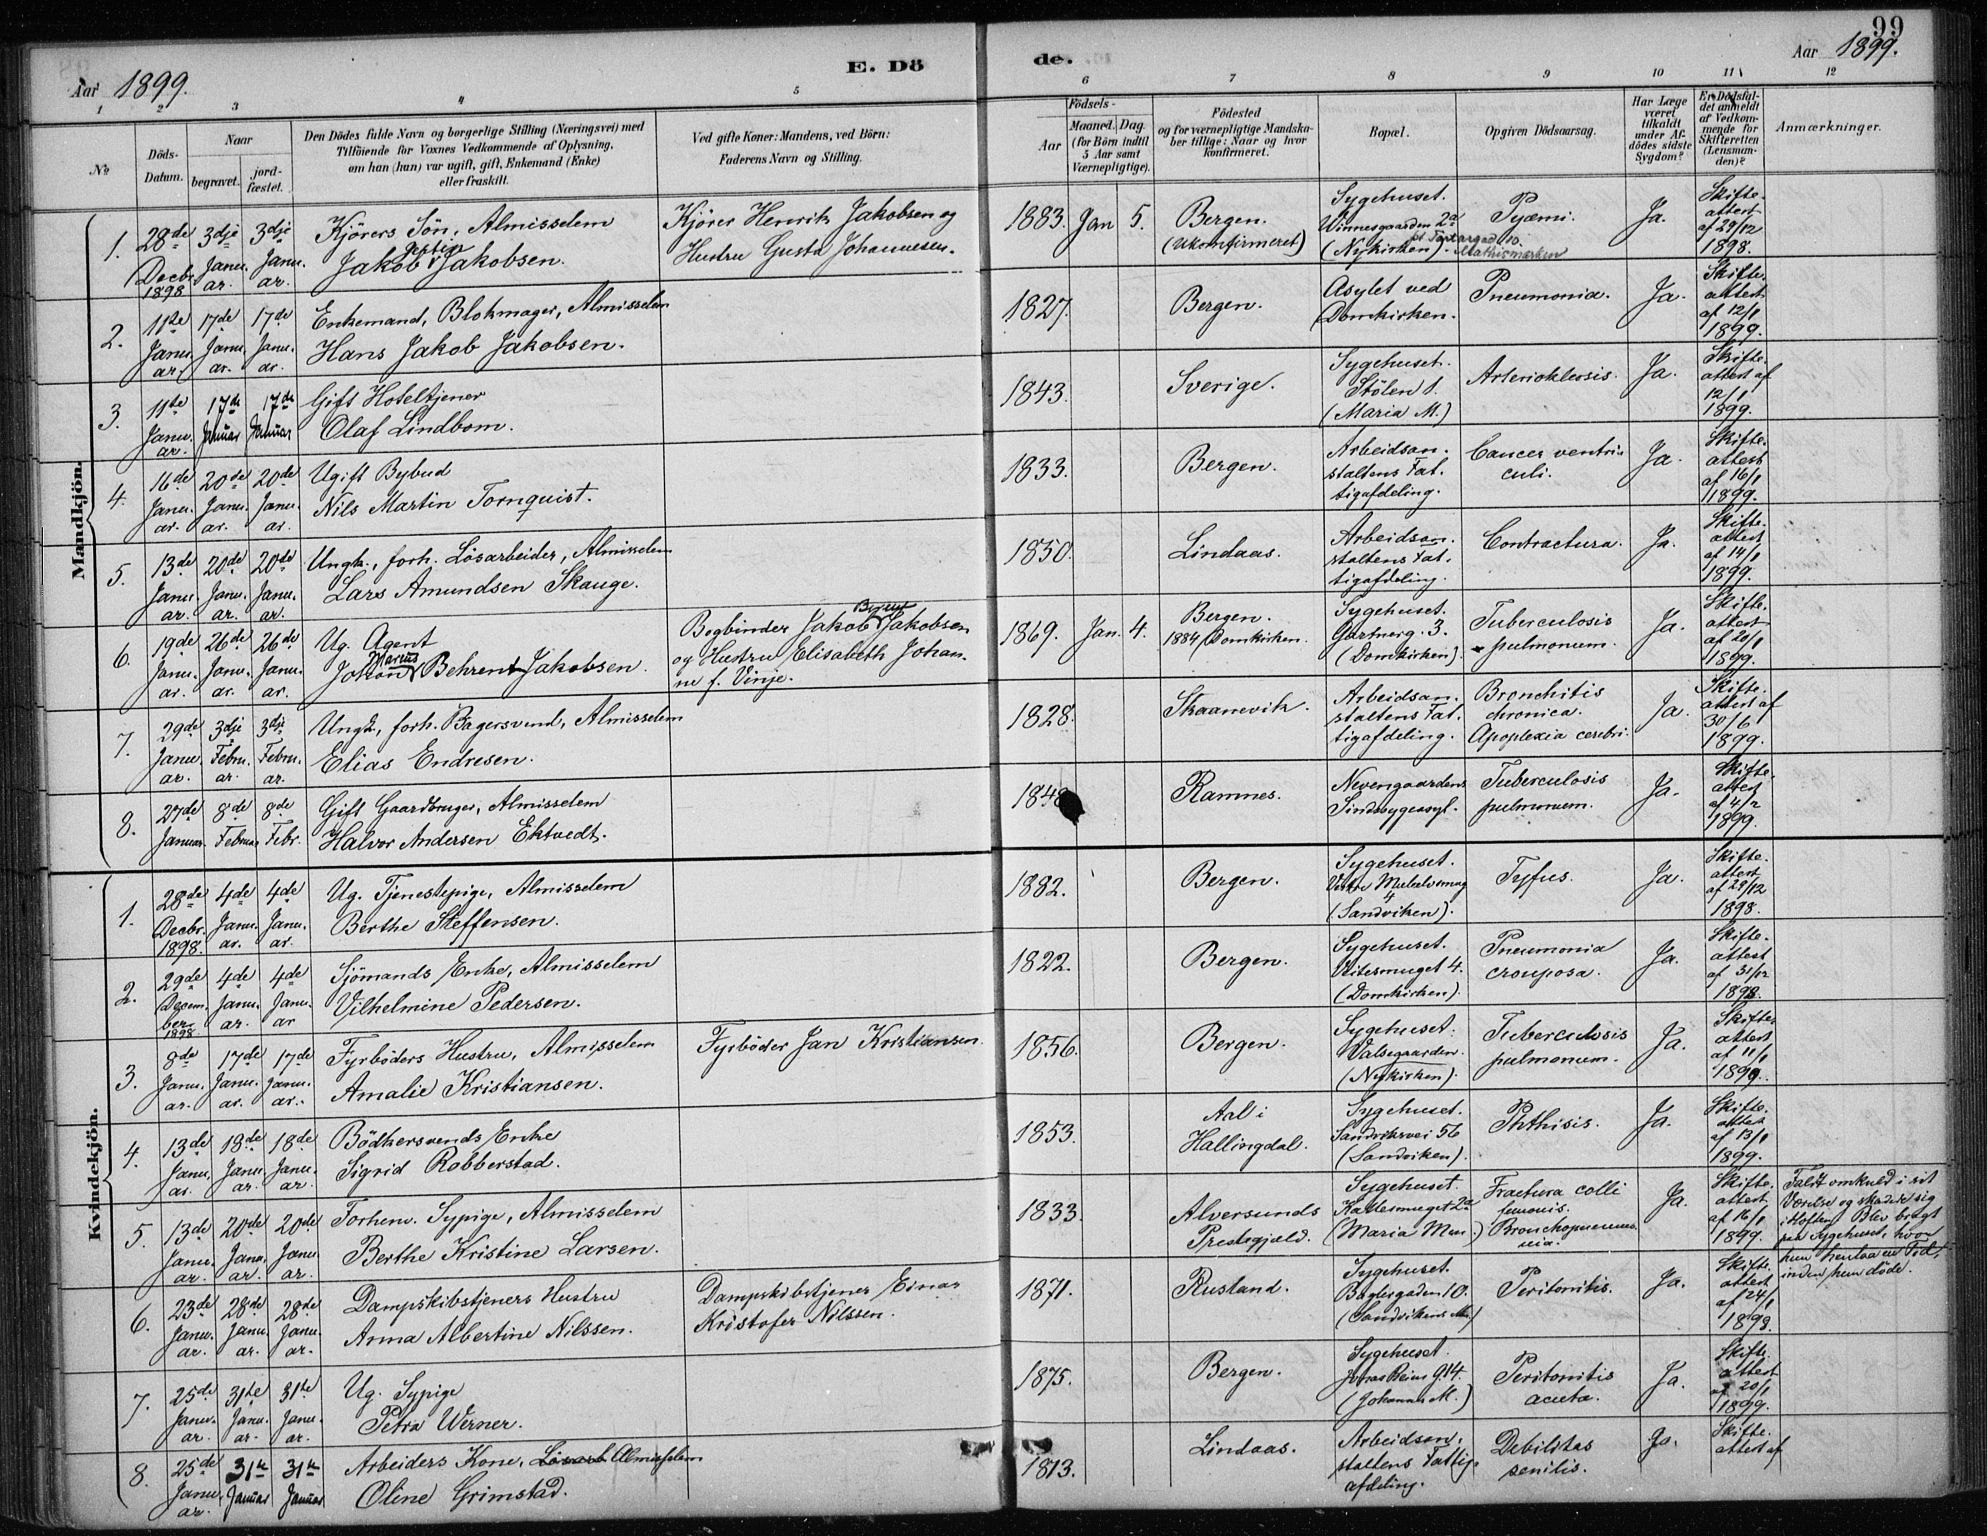 99
Aar 1899.
E. Dö
de.
Aar 1899.
1 2 3 4 5 6 7 8 9 10 11 12
No
Döds-Datum.
Naar
begravet.
jord-fæstet.
Den Dödes fulde Navn og borgerlige Stilling (Næringsvei) med
Tilföiende for Voxnes Vedkommende af Oplysning,
om han (hun) var ugift, gift, Enkemand (Enke)
eller fraskilt.
Ved gifte Koner: Mandens, ved Börn:
Faderens Navn og Stilling.
Födsels-
Aar
Maaned. Dag.
(for Börn indtil
5 Aar samt
Værnepligtige).
Födested
og for værnepligtige Mandska-
ber tillige: Naar og hvor
konfirmeret.
Bopæl.
Opgiven Dödsaarsag.
Har Læge
været
tilkaldt
under Af-
dödes sidste
Sygdom?
Er Dödsfal-
det anmeldt
af Vedkom-
mende for
Skifteretten
(Lensman-
den)?
Anmærkninger.
Mandkjön.
1. 28de Decbr. 1898 3dje Januar. 3dje Januar.
Kjörers Sön, Almisselem
Jakob Jakobsen.
Kjörer Henrik Jakobsen og
Hustru Gusta Johannesen.
1883. Jan 5.
Bergen.
(ukonfirmeret)
Sygehuset.
Winnesgaarden 2a
(Nykirken)
Pyæmi.
Ja.
Skifte-
attest
af 29/12
1898.
2. 11te Januar 17de Januar. 17de Januar.
Enkemand, Blokmager, Almisselem
Hans Jakob Jakobsen.
1827.
Bergen.
Asylet ved
Domkirken.
Pneumonia.
Ja.
Skifte-
attest
af 12/1
1899.
3. 11te Januar. 17de Januar 17de Januar
Gift Hoteltjener
Olaf Lindbom.
1843.
Sverige.
Sygehuset.
Stölen 1.
(Maria M.)
Arterioklerosis.
Ja.
Skifte-
attest af
12/1
1899.
4. 16de Januar. 20de Januar. 20de Januar.
Ugift Bybud
Nils Martin Tornquist.
1833.
Bergen.
Arbeidsan-
staltens Fat-
tigafdeling.
Cancer ventri-
culi.
Ja.
Skifte-
attest
af 16/1
1899.
5. 13de Januar. 20de Januar. 20de Januar.
Ungk., forh. Lösarbeider, Almisselem
Lars Amundsen Skauge.
1850.
Lindaas.
Arbeidsan-
staltens Fat-
tigafdeling.
Contractura.
Ja.
Skifte-
attest
af 14/1
1899.
6. 19de Januar. 26de Januar. 26de Januar.
Ug. Agent
Marcus
Johan Behrent Jakobsen.
Berent
Bogbinder Jakob Jakobsen
og Hustru Elisabeth Johan-
ne f. Vinje.
1869. Jan. 4.
Bergen.
1884 Domkirken.
Sygehuset.
Gartnerg. 3.
(Domkirken).
Tuberculosis
pulmonum.
Ja.
Skifte-
attest
af 20/1
1899.
7. 29de Januar. 3dje Februar. 3dje Februar.
Ungk., forh. Bagersvend, Almisselem
Elias Endresen.
1828.
Skaanevik.
Arbeidsan-
staltens Fat-
tigafdeling.
Bronchitis
chronica.
Apoplexia cerebri.
Ja.
Skifte-
attest af
30/6
1899.
8. 27de Januar. 8de Februar 8de Febr.
Gift Gaardbruger, Almisselem
Halvor Andersen Ektvedt.
1848
Ramnes.
Nevengaardens
Sindssygeasyl.
Tuberculosis
pulmonum.
Ja.
Skifte-
attest
af 4/2
1899.
Kvindekjön.
1. 28de Decbr. 1898. 4de Januar. 4de Januar.
Ug. Tjenestepige, Almisselem
Berthe Steffensen.
1882.
Bergen.
Sygehuset.
4
(Sandviken).
Tyfus.
Ja.
Skifte-
attest
af 29/12
1898.
2. 29de December 1898 4de Januar. 4de Januar
Sjömands Enke, Almisselem
Vilhelmine Pedersen.
1822.
Bergen.
Sygehuset.
4.
(Domkirken).
Pneumonia
crouposa.
Ja.
Skifte-
attest
af 31/12
1898.
3. 8de Januar. 17de Januar. 17de Januar.
Fyrböders Hustru, Almisselem
Amalie Kristiansen.
Fyrböder Jan Kristiansen.
1856.
Bergen.
Sygehuset.
Valsegaarden.
(Nykirken).
Tuberculosis
pulmonum.
Ja.
Skifte-
attest
af 11/1
1899.
4. 13de Januar. 18de Januar. 18de Januar.
Bödkersvends Enke
Sigrid Robberstad.
1853.
Aal i
Hallingdal.
Sygehuset.
Sandviksvei 56
(Sandviken).
Phthisis.
Ja.
Skifte-
attest
af 13/1
1899.
5. 13de Januar. 20de Januar. 20de Januar.
Forhenv. Sypige, Almisselem
Berthe Kristine Larsen.
1833.
Alversunds
Prestegjæld.
Sygehuset.
Kattesmuget 2a
(Maria Men.)
Fractura colli
femoris.
Bronchopneumo-
nia.
Ja.
Skifte-
attest
af 16/1
1899.
Faldt omkuld i sit
Værelse og skadede sig
i Hoften. Blev bragt
paa Sygehuset, hvor
hun henlaa en Tid,
inden hun döde.
6. 23de Januar. 28de Januar. 28de Januar.
Dampskibstjeners Hustru
Anna Albertine Nilssen.
Dampskibstjener Einar
Kristofer Nilssen.
1871.
Rustand.
Sygehuset.
Baglergaden 10.
(Sandvikens Mn.)
Peritonitis.
Ja.
Skifte-
attest
af 24/1
1899.
7. 25de Januar. 31te Januar. 31te Januar.
Ug. Sypige
Petra Werner.
1875.
Bergen.
Sygehuset.
Jonas Reins G. 14.
(Johannes M.)
Peritonitis
acuta.
Ja.
Skifte-
attest
af 20/1
1899.
8. 25de Januar. 31te Januar 31te Januar
Arbeiders Kone, Almisselem
Oline Grimstad.
1813.
Lindaas.
Arbeidsan-
staltens Fattig-
afdeling.
Debilitas
senilis.
Ja.
Skifte-
attest af